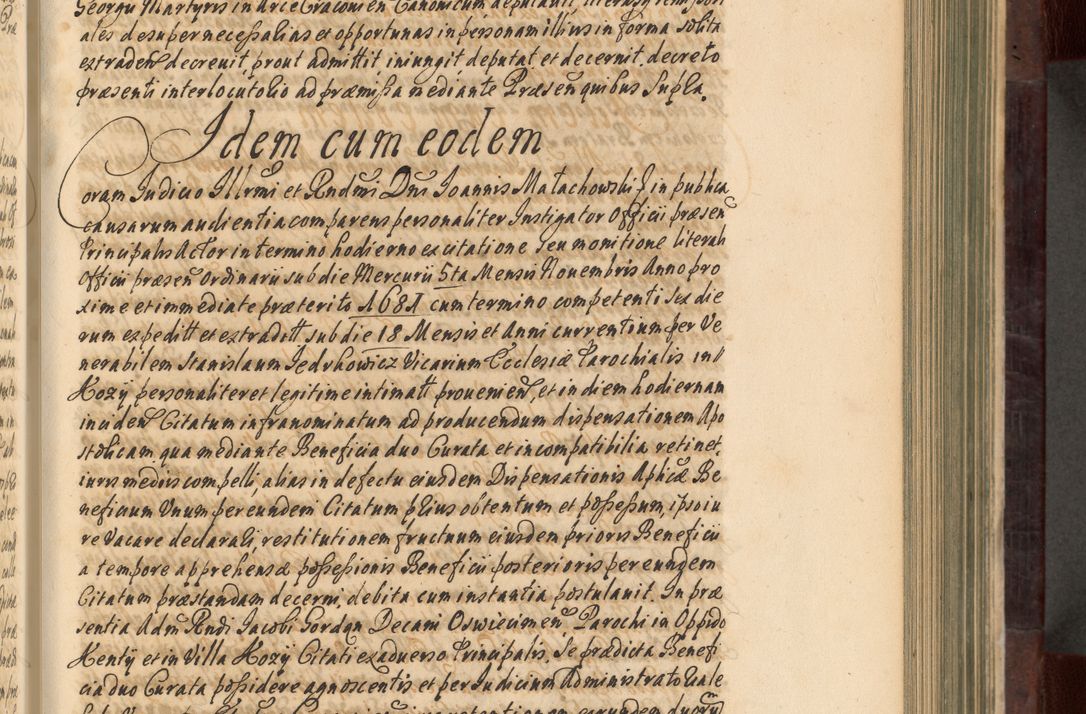 Georgii Martyris in Arce Cracovien Canonicum deputavit, literasq
ales desuper necessarias et opportunas in personam illius in forma solita
extraden decrevit, prout admittit iniungit deputat et decernit, decreto
præsenti interlocutolio ad præmissa mediante Præsen quibus Supla.
Idem cum eodem
Coram Iudicio Illrmi et Rndmi Dni Ioannis Małachowski in publica
causarum audientia comparens personaliter Instigator Officii præsen
Principalis Actor in termino hodierno ex citatione seu monitione literali
Officii præsen ordinarii sub die Mercurii 5ta Mensis Novembris Anno pro
xime et immediate præterito 1681 cum termino competenti sex die
rum expeditt et extraditt sub die 18 Mensis et Anni currentium per Ve
nerabilem Stanislaum Jedrkowicz Vicarium Ecclesiæ Parochialis in
Kozy personaliter et legitime intimatt provenien, et in diem hodiernam
inciden Citatum infranominatum ad producendum dispensationem Apo
stolicam qua mediante Beneficia duo Curata et incompatibilia retinet,
iuris mediis compelli, alias in defectu eiusdem Dispensationis Aplicæ Be
neficium Unum per eundem Citatum prius obtentum et possessum ipso iu
re vacare declarali, restitutionem fructuum eiusdem prioris Beneficii
a tempore apprehensæ possessionis Beneficii posterioris per eundem
Citatum præstandam decerni, debita cum instantia postulavit. In præ
sentia Adm Rndi Iacobi Gordon Decani Oswiecimen Parochi in Oppido
Kenty et in Villa Kozy Citati ex adverso Principalis, Se prædicta Benefi
cia duo Curata possidere agnoscentis et per Iudicium Administrato